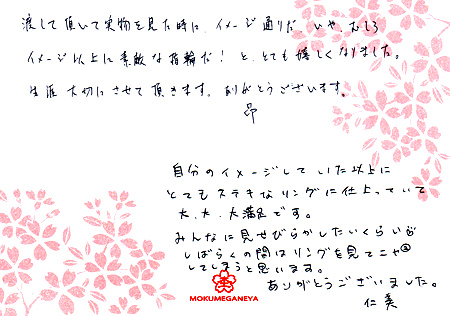 渡して頂いて実物を見た時に、イメージ通りだ、いや、むしろ
イメージ以上に素敵な指輪だ！と、とても嬉しくなりました。
生涯大切にさせて頂きます。ありがとうございます。
昂
自分のイメージしていた以上に
とてもステキなリングに仕上っていて
大、大、大満足です。
みんなに見せびらかしたいくらい
しばらくの間はリングを見てニヤニヤ
してしまうと思います。
ありがとうございました。
仁美
MOKUMEGANEYA